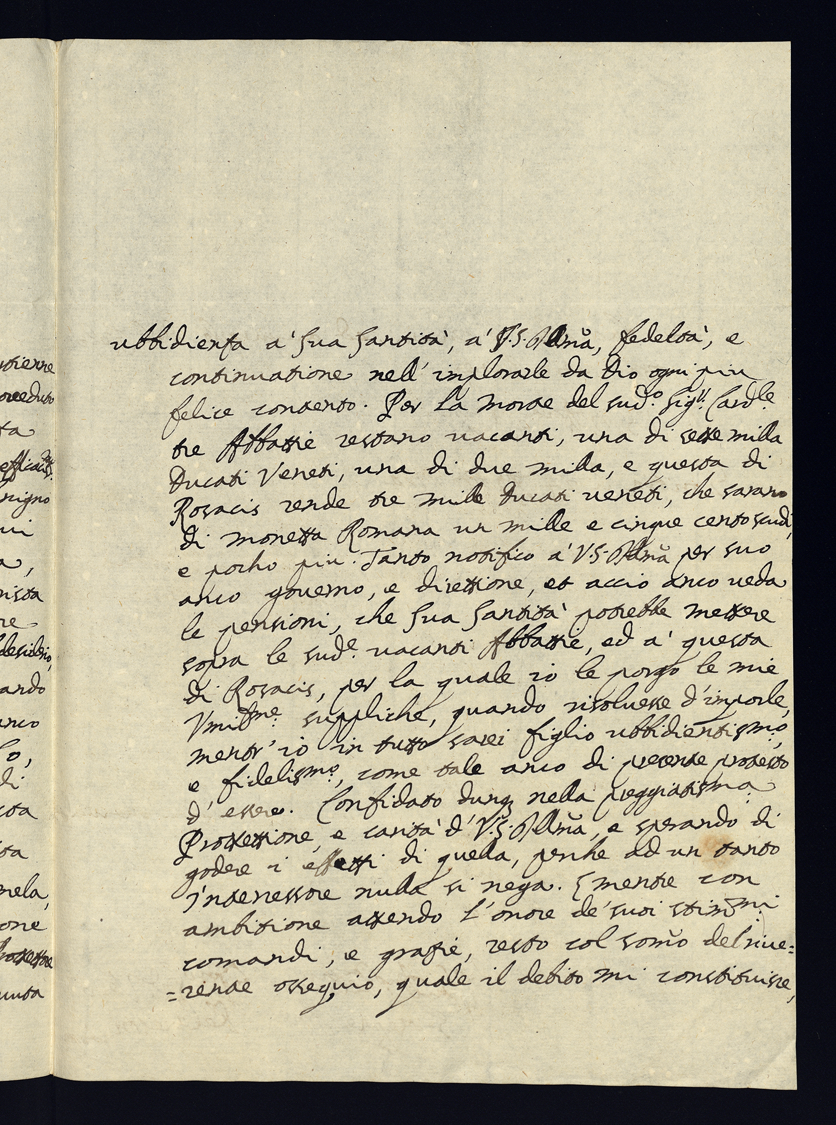 ubbidienza a' Sua Santità, a' V.S. Illma, fedeltà, e
continuatione nell' implorarle da Dio ogni piu
felice contento. Per la morte del sudº. Sigr. Cardle.
tre Abbatie restano vacanti, una di sette milla
Ducati Veneti, una di due milla, e questa di
Rosacis rende tre mille Ducati veneti, che sarano
di monetta Romana un mille e cinque cento scudi,
e pocho piu. Tanto notifico a' V.S. Illma per suo
anco governo, e direttione, et accio anco veda
le pensioni, che Sua Santità potrebbe mettere
sopra le sude. vacanti Abbatie, ed a' questa
di Rosacis, per la quale io le porgo le mie
Vmilme. suppliche, quando risoluesse d'imporle,
mentr' io in tutto sarei figlio ubbidientismo,
e fidelismo, come tale anco di presente protesto
d' essere. Confidato dunq nella preggiatisma
Protettione, e carità d' V.S. Illma, e sperando di
godere i effetti di quella, perche ad un tanto
Intenessore nulla si nega. E mentre con
ambitione attendo l'onore de' suoi stimmi
comandi, e grazie, resto col somo del riue=
=rente ossequio, quale il debito mi constituisce,
otienne
proceduto
ta
efficaciss
nigno
ui
a,
nista
re
desiderio,
ando
anco
lo,
di
sta
ita
nela,
one
Protettore
uuta